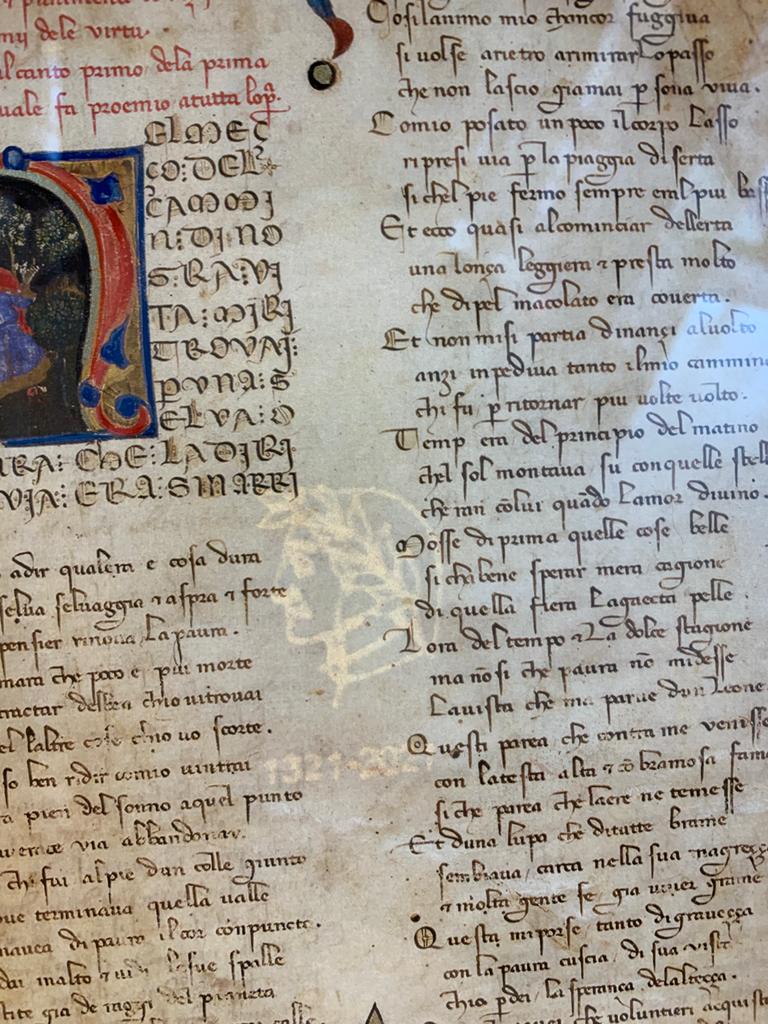 mj dele virtu.
al canto primo dela prima
uale fa proemio atutta lopa.
ELMEC
CO:DEL
CAMMI
N:DI NO
S:RA:VI
TA:MIRI
TROVAI:
PVNA:S
ELVA:O
RA: CHE: LADIRI
VIA: ERA: SMARRI
adir qualera e cosa dura
selva selvaggia ⁊ aspra ⁊ forte
pensier rinova la paura.
mara che poco e piu morte
tractar del ben chio vi trovai
el laltre cose chio vo scorte.
so ben ridir comio vintrai
a pien del sonno aquel punto
verace via abbandonai.
chi fui alpie dun colle giunto
ove terminava quella valle
navea di paura il cor conpuncto.
dai inalto ⁊ vidi le sue spalle
tite gia de raggi del pianeta
Cosi lanimo mio chancor fuggiva
si volse arietro arimirar lo passo
che non lascio giamai psona viva.
Comio posato un poco il corpo lasso
ripresi via p la piaggia diserta
si chel pie fermo sempre eral piu bas
Et ecco quasi alcominciar dellerta
una lonça leggiera ⁊ presta molto
che dipel macolato era coverta.
Et non misi partia dinançi alvolto
anzi inpediva tanto ilmio cammin
chi fu p ritornar piu volte volto.
Temp era del principio del matino
chel sol montava su con quelle stell
che eran cõlui quãdo lamor divino.
Mosse di prima quelle cose belle
si cha bene sperar mera cagione
di quella fiera lagaecta pelle.
Lora del tempo ⁊ la dolce stagione
ma nõ si che paura nõ midesse
lavista che ma parve dun leone
Questi parea che contra me venisse
con latesta alta ⁊ cõ bramosa fam
si che parea che laere ne temesse
Et duna lupa che ditutte brame
sembiava carca nella sua magreçça
⁊ molta gente fe gia viver grame
Questa miporse tanto digraveçça
con la paura cuscia di sua vist
chio perdei la sperança delalteçça.
che voluntieri acquist
1321-202